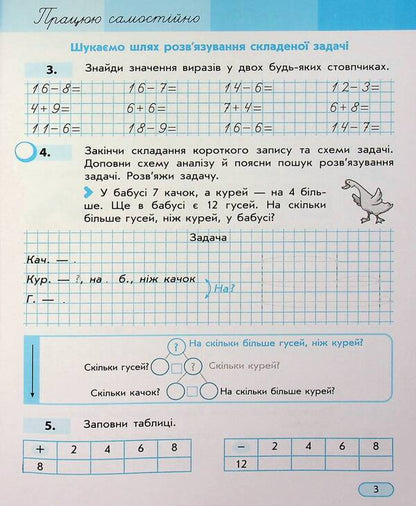 Працюю самостійно
Шукаємо шлях розв'язування складеної задачі
3. Знайди значення виразів у двох будь-яких стовпчиках.
16-8= 16-7= 14-6= 12-3=
4+9= 6+6= 7+4= 6+8=
11-6= 18-9= 16-6= 14-7=
4. Закінчи складання короткого запису та схеми задачі.
Доповни схему аналізу й поясни пошук розв'язування
задачі. Розв'яжи задачу.
У бабусі 7 качок, а курей — на 4 біль-
ше. Ще в бабусі є 12 гусей. На скільки
більше гусей, ніж курей, у бабусі?
Задача
Кач. — .
Кур. — ?, на . б., ніж качок
На?
Г. — .
? На скільки більше гусей, ніж курей?
Скільки гусей? ? Скільки курей?
Скільки качок? На скільки більше курей?
5. Заповни таблиці.
+ 2 4 6 8
8
− 2 4 6 8
12
3